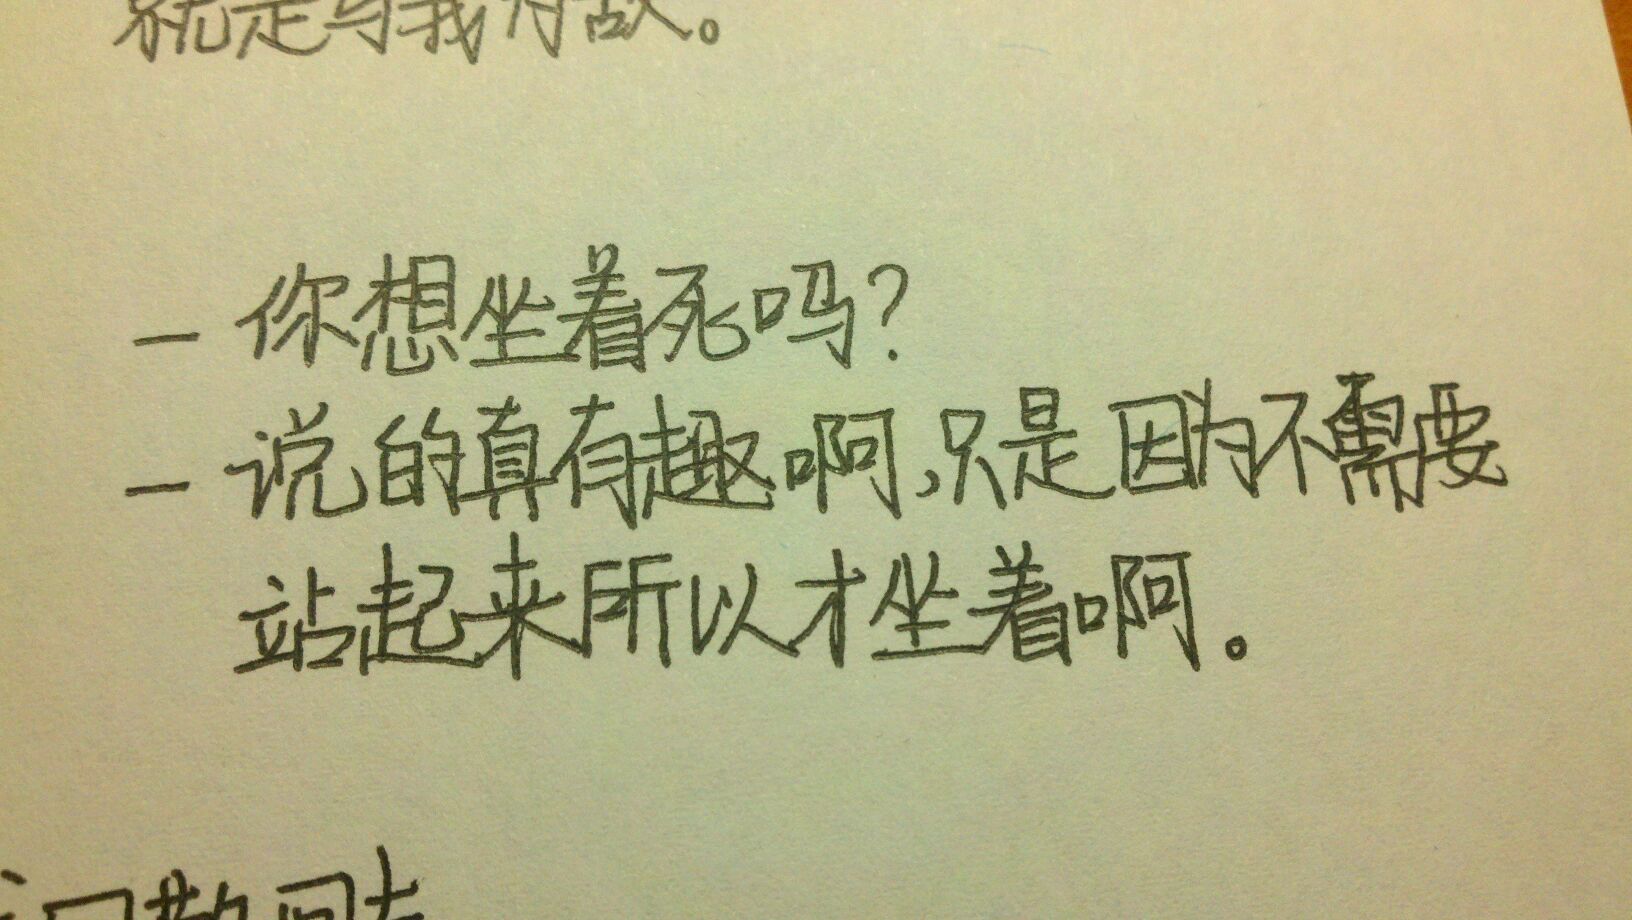 就是与我为敌。
- 你想坐着死吗?
- 说的真有趣啊,只是因为不需要
站起来所以才坐着啊。